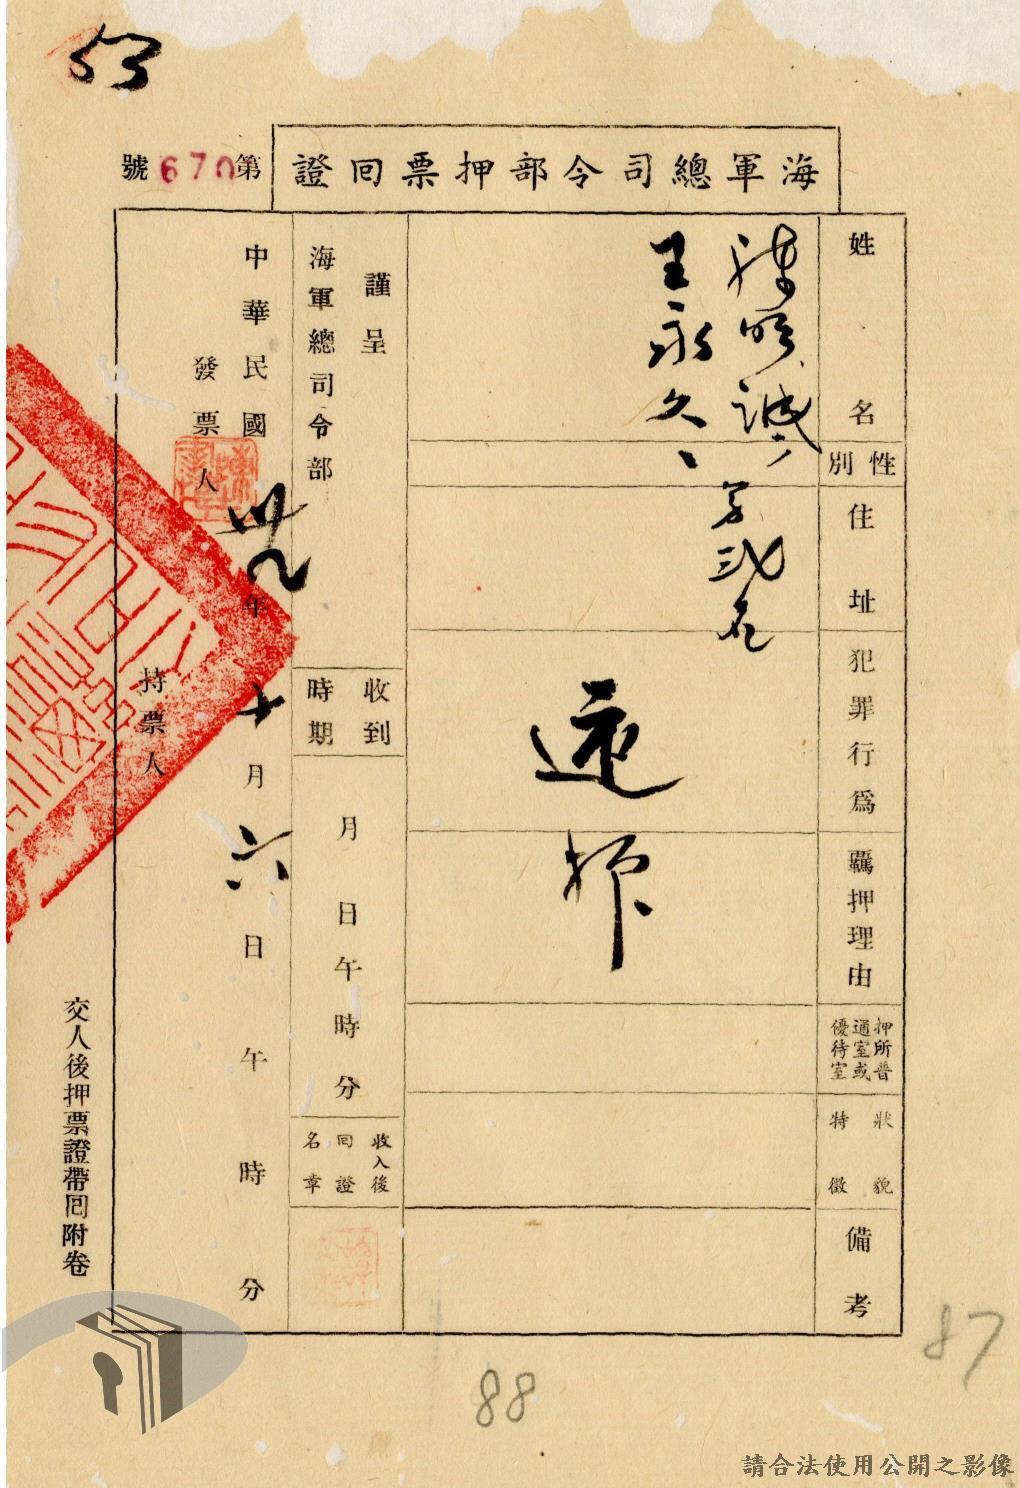 53
海軍總司令部押票回證
第670號
姓名
性別
住址
犯罪行為
羈押理由
押所普通室或優待室
狀貌特徵
備考
陳明誠、
王永久、
等弍名
還押
謹呈
海軍總司令部
收到時期
月日午時分
收入後回證名章
中華民國卅九年十月六日午時分
發票人
持票人
交人後押票證帶回附卷
87
88
請合法使用公開之影像